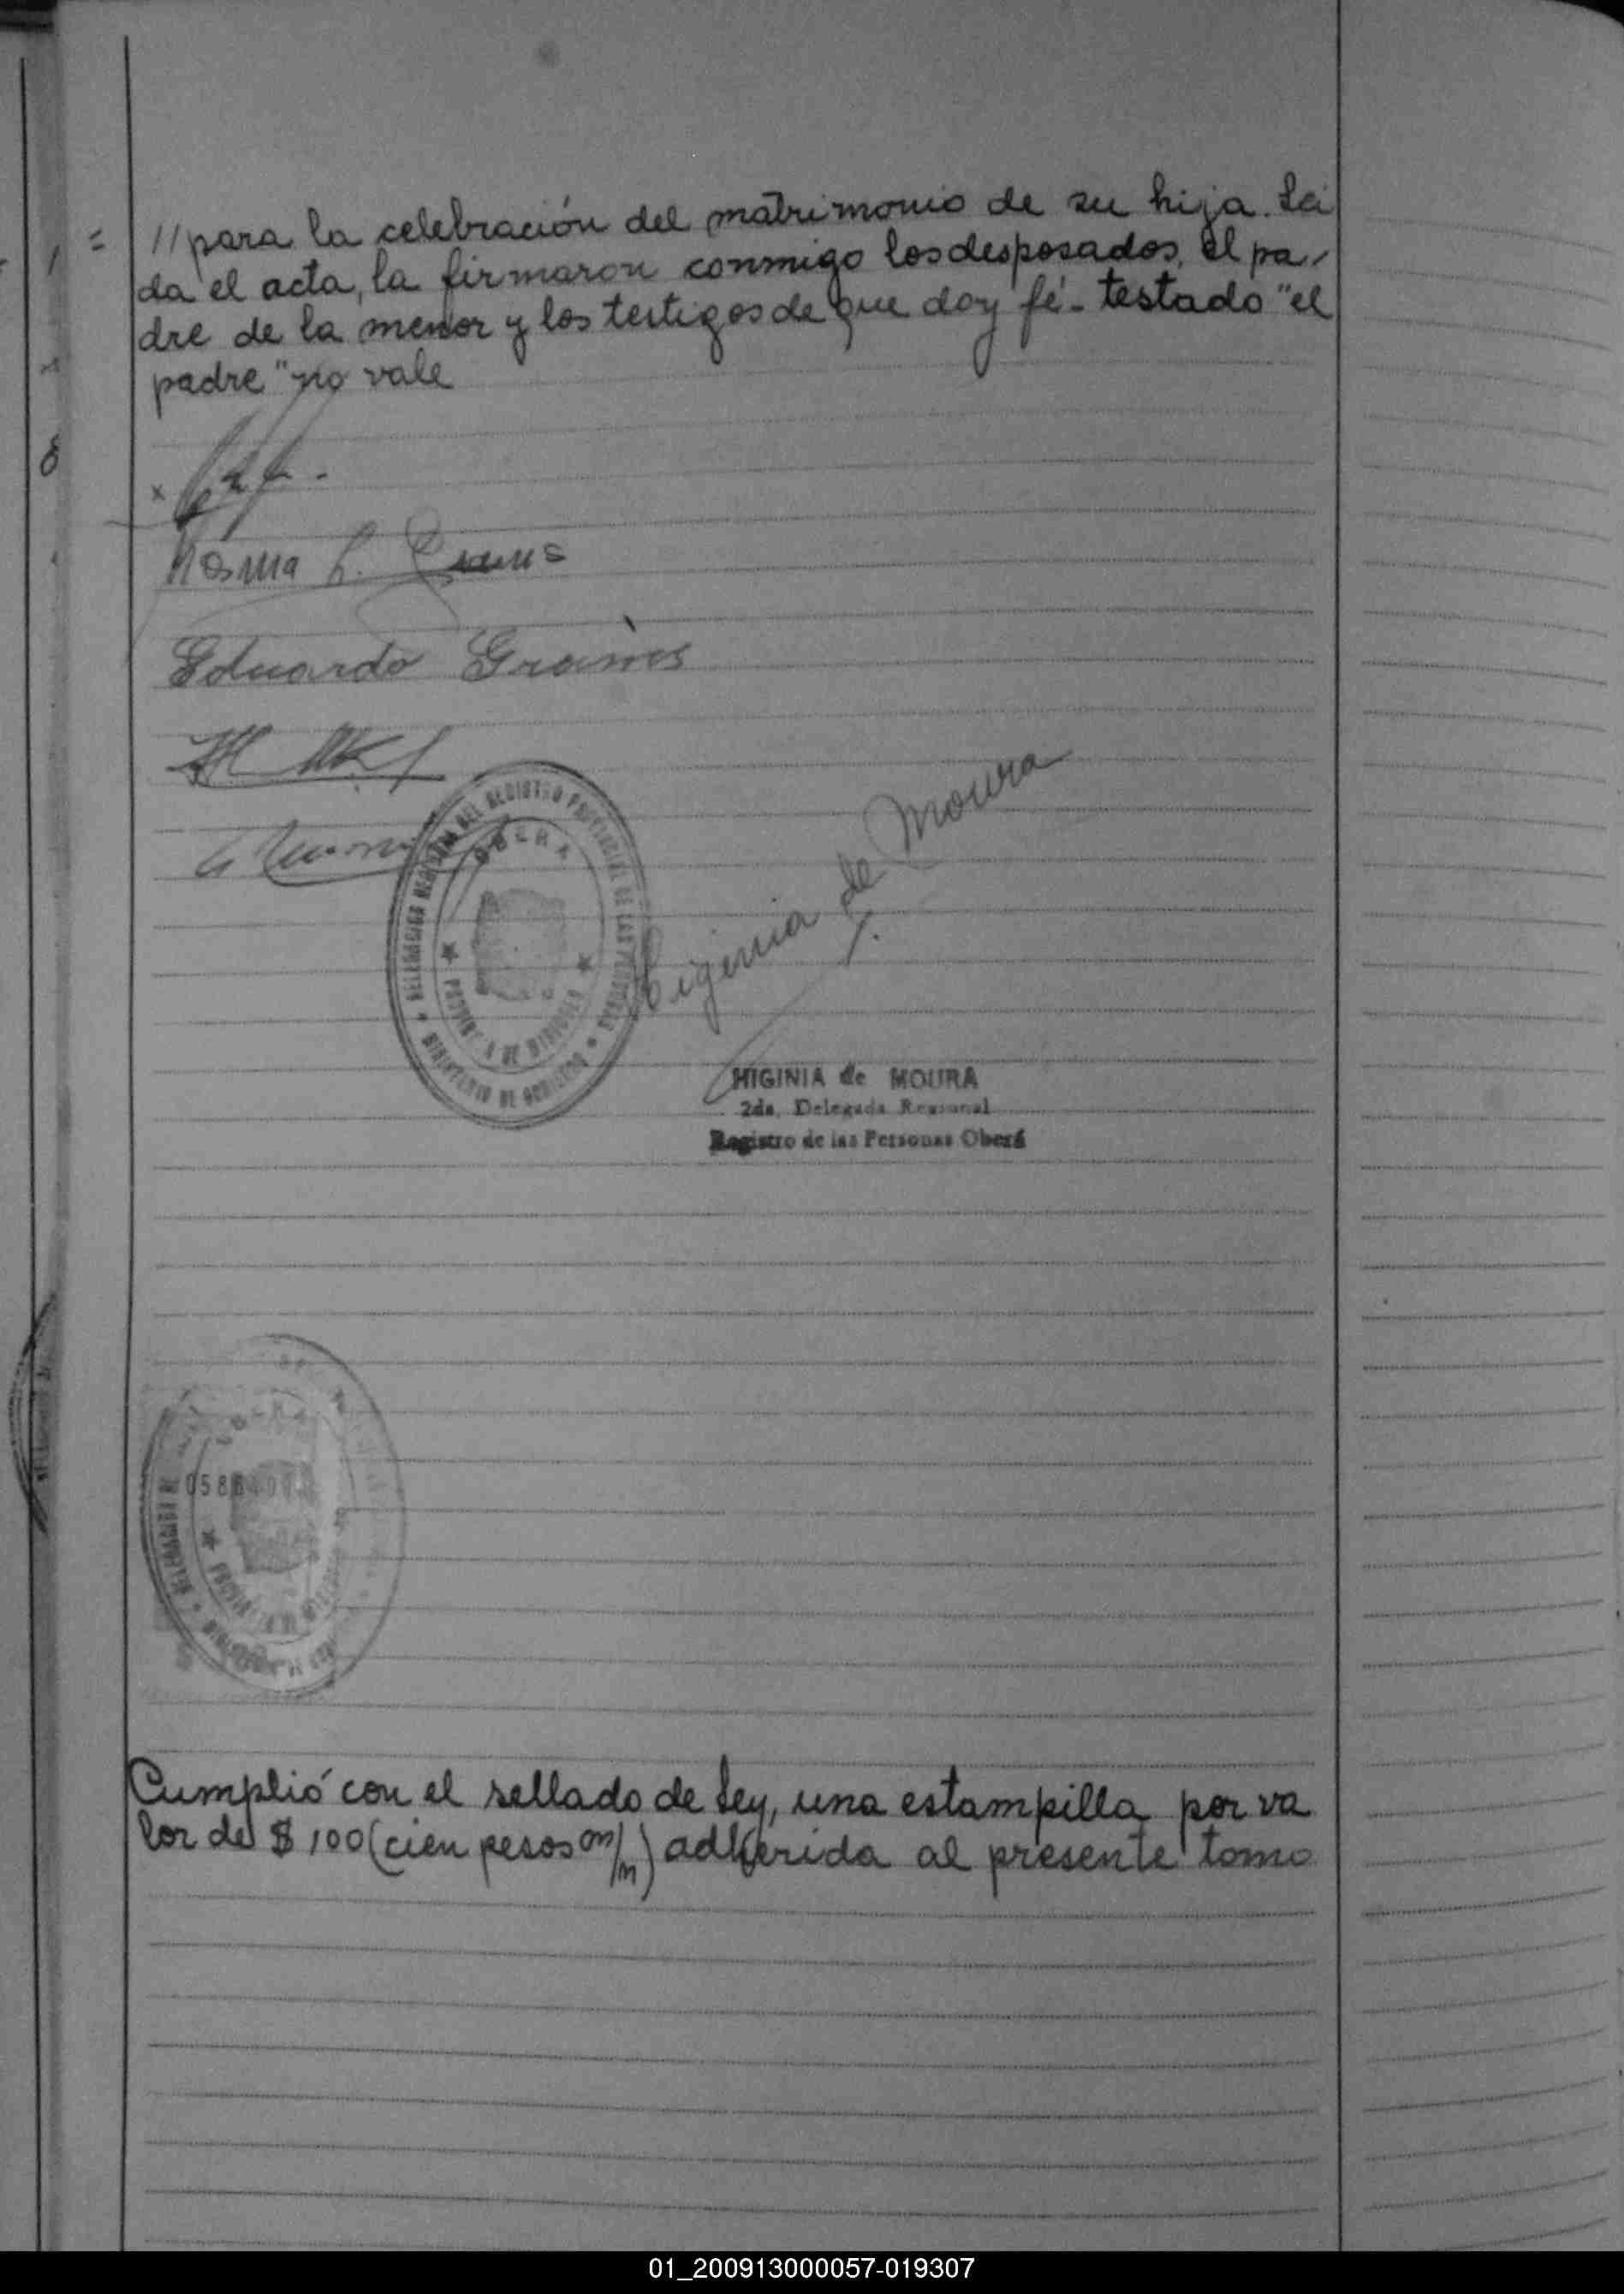 = //para la celebración del matrimonio de su hija. Lei
da el acta, la firmaron conmigo los desposados, el pa-
dre de la menor y los testigos de que doy fé - testado "el
padre" no vale
x
Norma
Eduardo
DELEGACION REGIONAL DEL REGISTRO PROVINCIAL DE LAS PERSONAS
OBERA
PROVINCIA DE MISIONES
MINISTERIO DE GOBIERNO
Higinia de Moura
HIGINIA de MOURA
2da. Delegada Regional
Registro de las Personas Oberá
OBERA
PROVINCIA DE MISIONES
Cumplió con el sellado de Ley, una estampilla por va
lor de $ 100 (cien pesos m/n) adherida al presente tomo
01_200913000057-019307